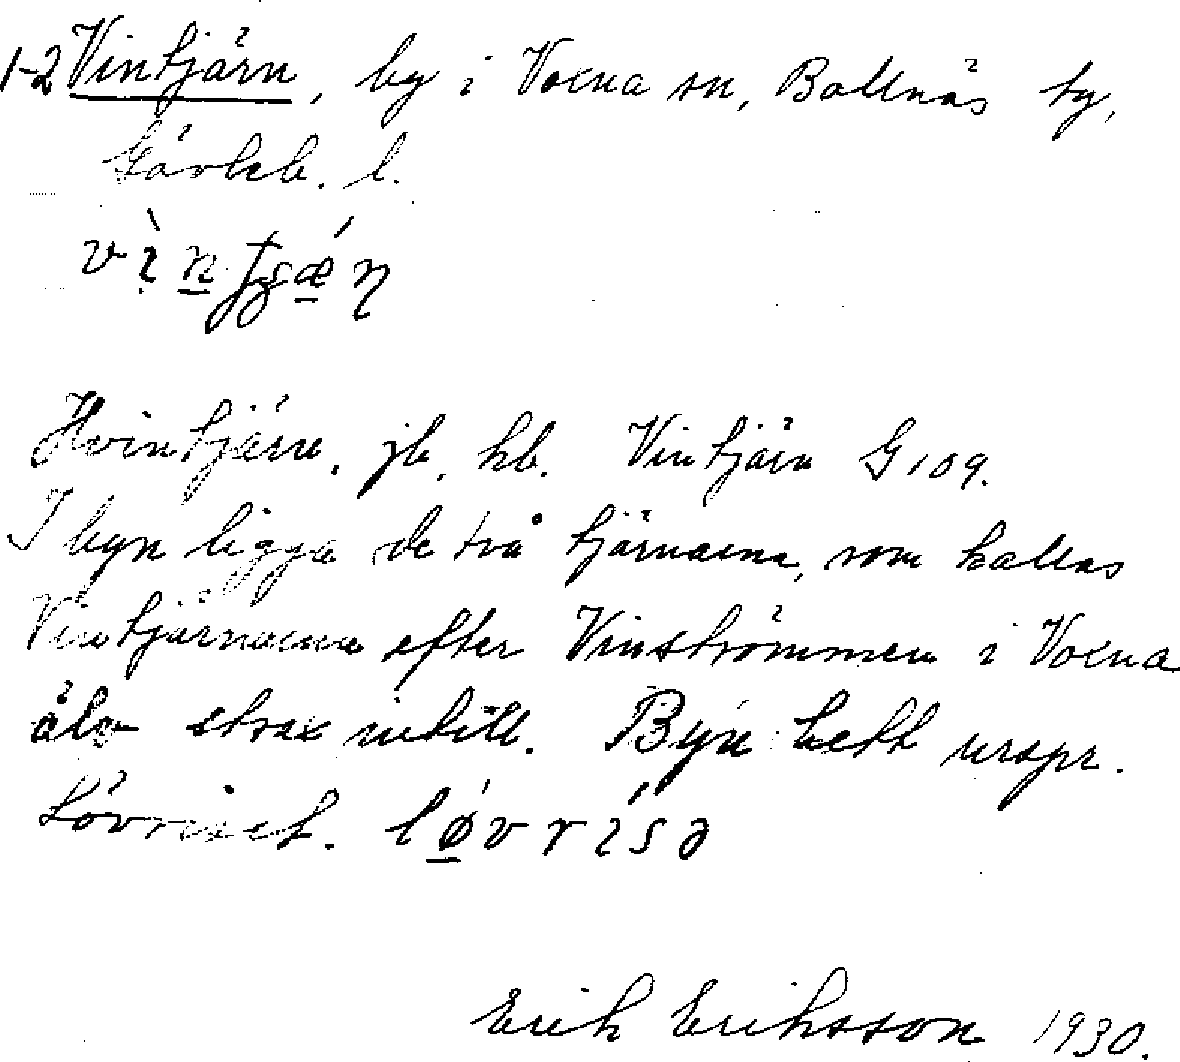 1-2 Vintjärn, by i Voxna sn, Bollnäs ty,
Gävleb. l.
Hvintjärn, jb, hb. Vintjärn G 109.
I byn ligga de två tjärnarna, som kallas
Vintjärnarna efter Vinströmmen i Voxna
älv strax intill. Byn: hett urspr.
Lövriset. løvrisə
Erik Eriksson 1930.